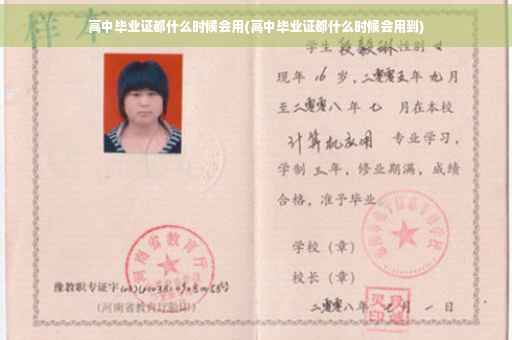 样本
高中毕业证都什么时候会用(高中毕业证都什么时候会用到)
学生段毅琳性别女
现年16岁,二零零五年九月
至二零零八年七月在本校
计算机应用 专业学习,
学制三年,修业期满,成绩
合格,准予毕业
学校(章)
校长(章)
二零零八年七月一日
河南省教育厅
豫教职专证字
(河南省教育厅验印)